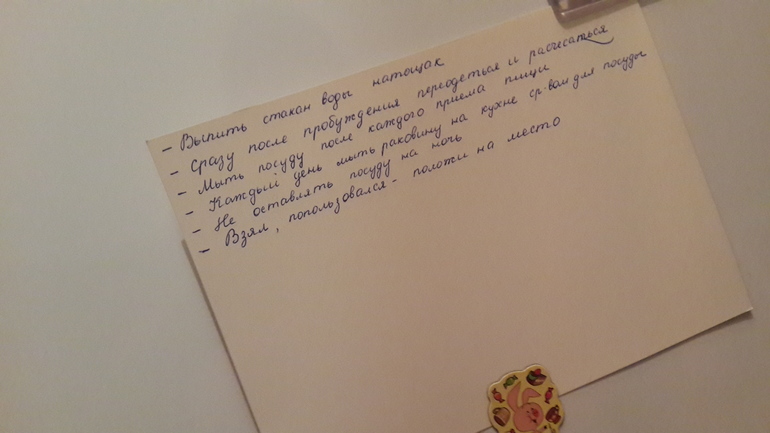 - Выпить стакан воды натощак
- Сразу после пробуждения переодеться и расчесаться
- Мыть посуду после каждого приема пищи
- Каждый день мыть раковину на кухне ср-вом для посуды
- Не оставлять посуду на ночь
- Взял, попользовался - положи на место